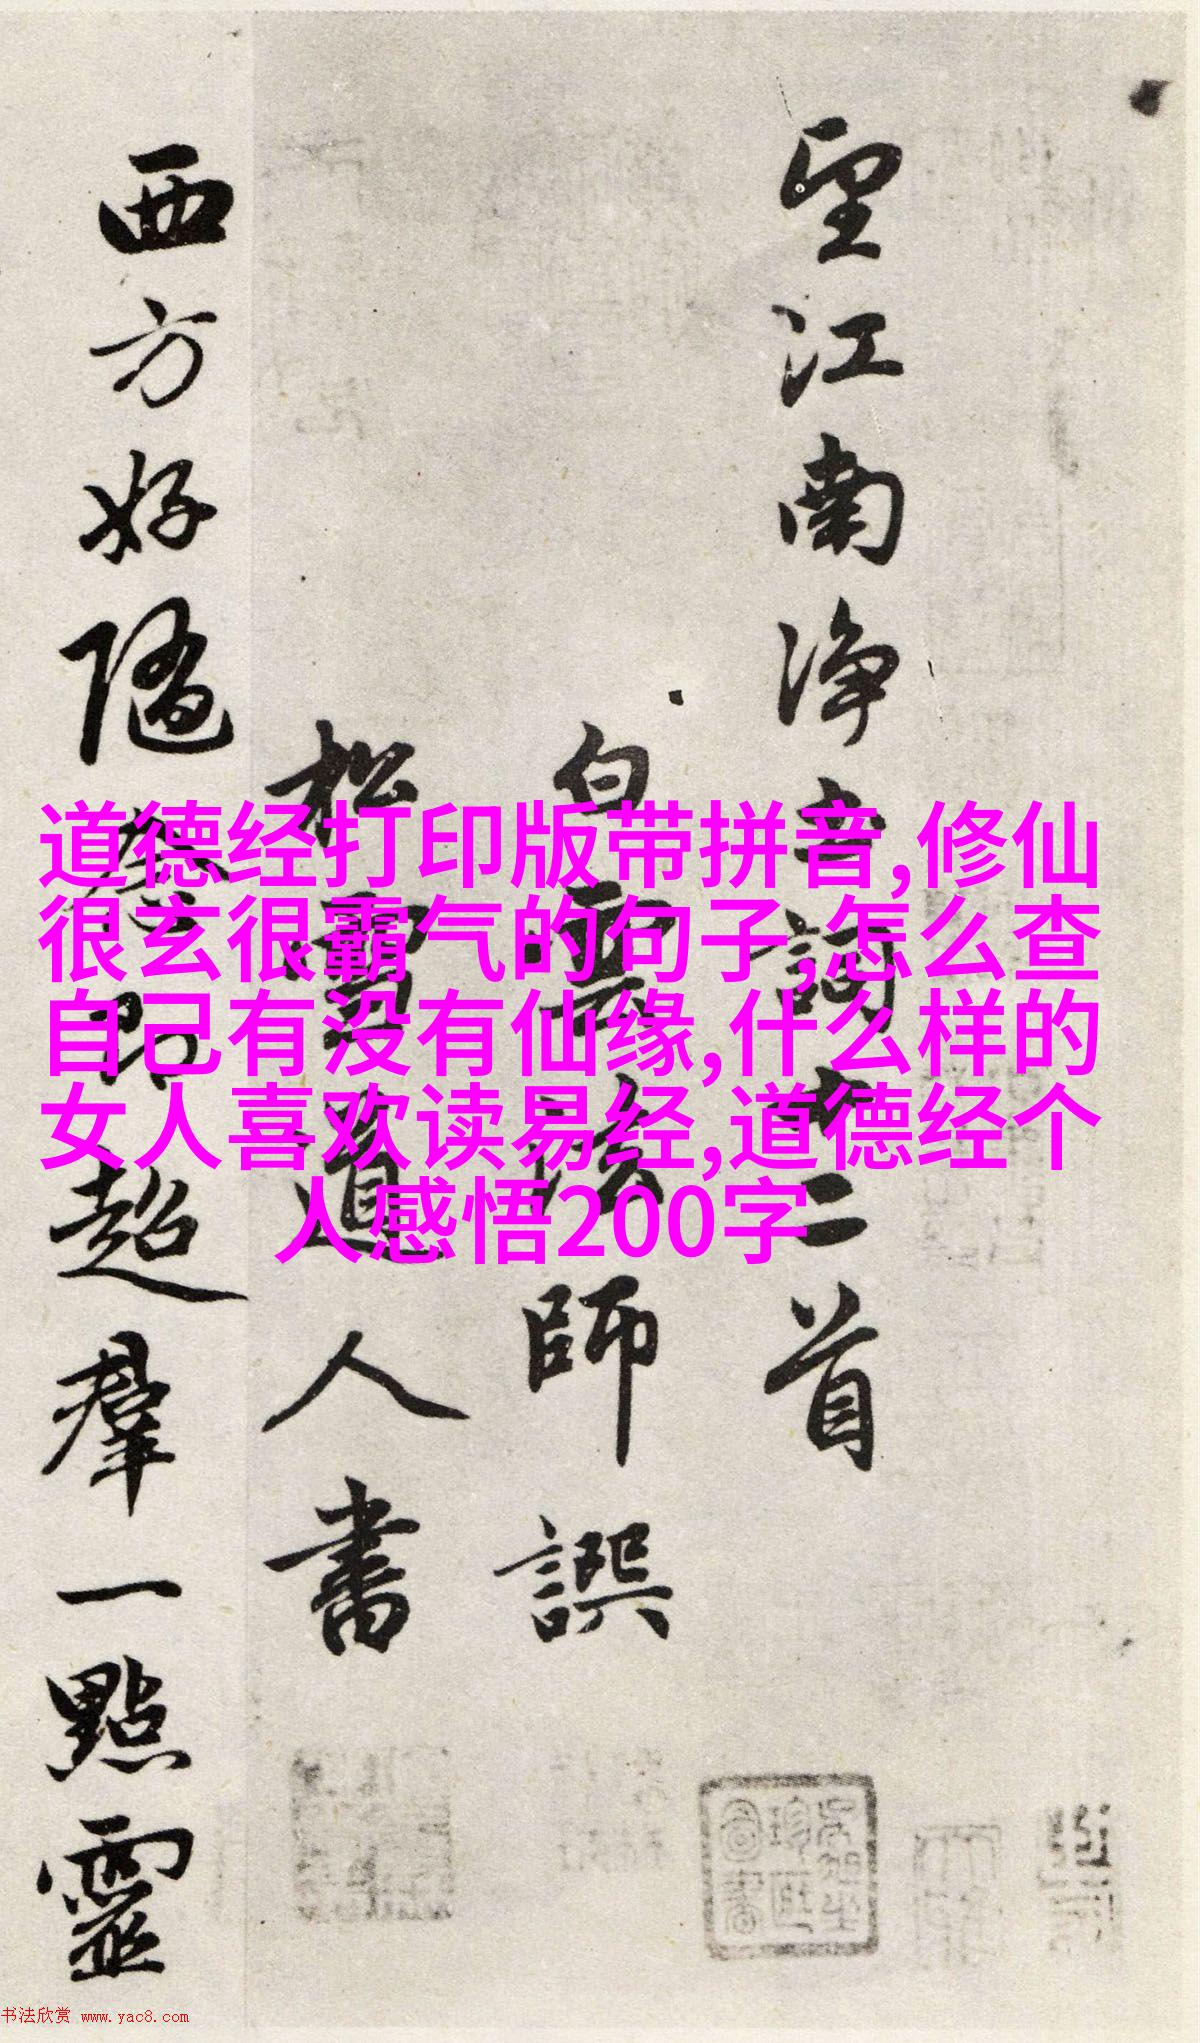 望江南浄土詞十二首
白雲法師譔
松雪道人書
西方好隨念即超羣一點靈
道德经打印版带拼音,修仙
很玄很霸气的句子,怎么查
自己有没有仙缘,什么样的
女人喜欢读易经,道德经个
人感悟200字
书法欣赏 www.yac8.com